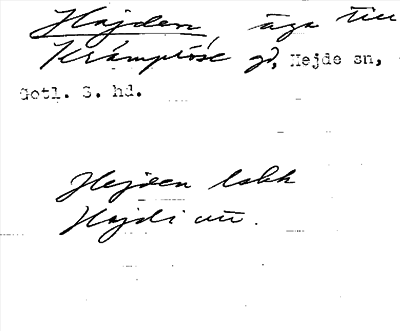 Hajden, äga till
Krämplöse gd, Hejde sn,
Gotl. S. hd.
Hejden lokk
Hajdi utt.